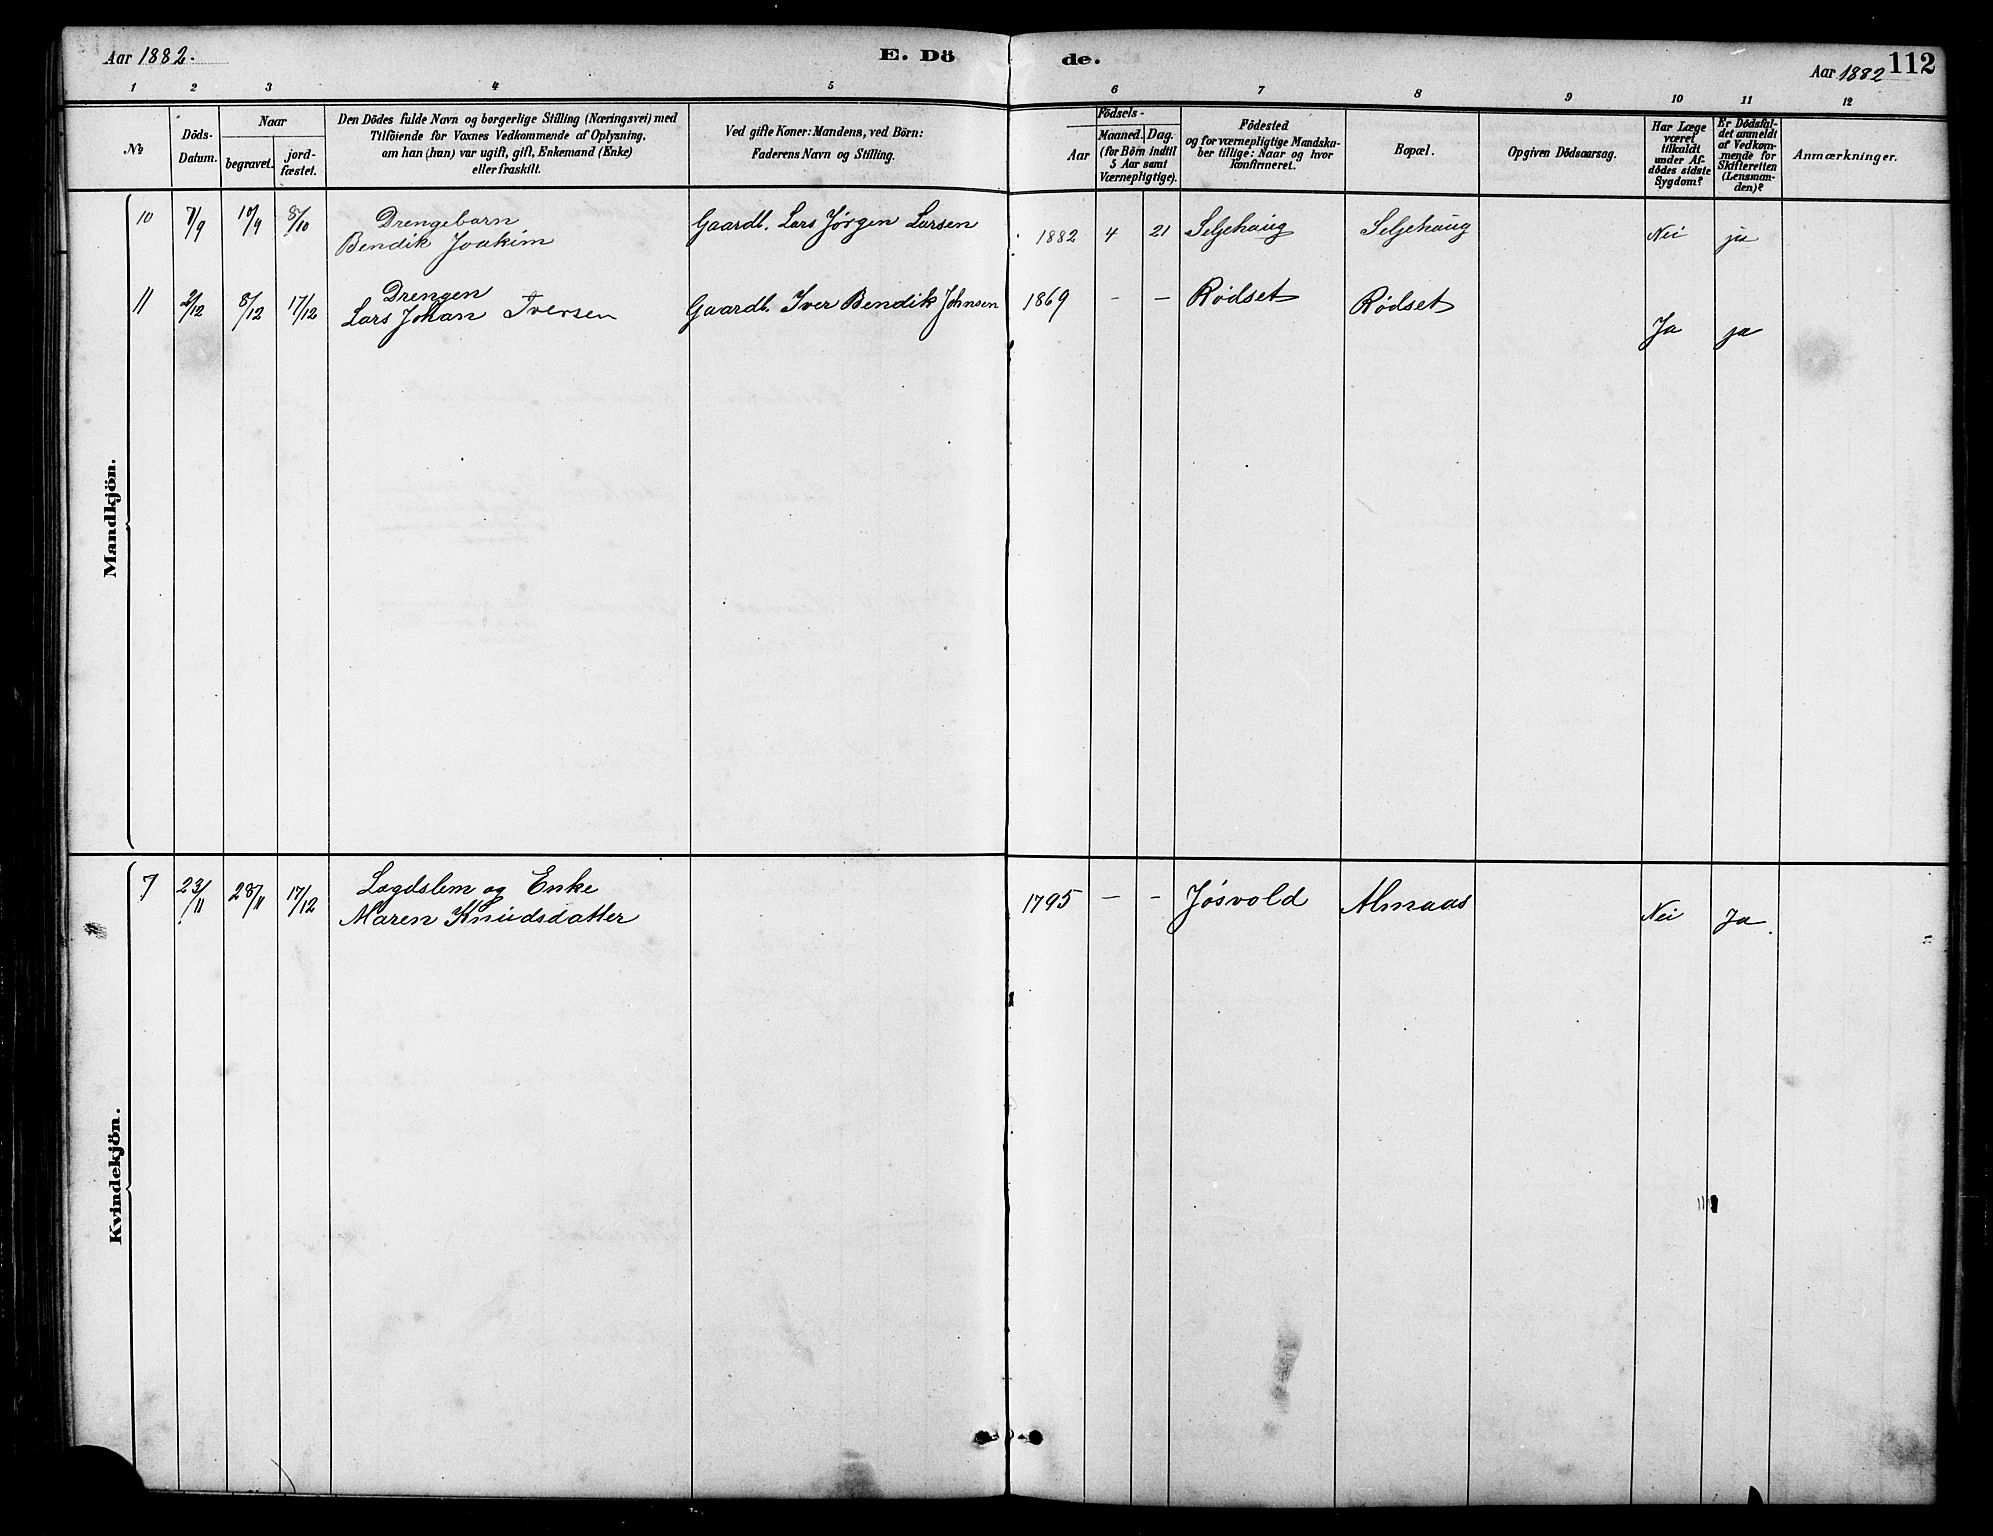 Aar 1882.
E. Dö de.
Aar 1882 112
1 2 3 4 5 6 7 8 9 10 11 12
№
Döds-
Datum.
Naar
begravet.
jord-
fæstet.
Den Dödes fulde Navn og borgerlige Stilling (Næringsvei) med
Tilföiende for Voxnes Vedkommende af Oplysning,
om han (hun) var ugift, gift, Enkemand (Enke)
eller fraskilt.
Ved gifte Koner: Mandens, ved Börn:
Faderens Navn og Stilling.
Födsels-
Aar
Maaned. Dag.
(for Börn indtil
5 Aar samt
Værnepligtige).
Födested
og for værnepligtige Mandska-
ber tillige: Naar og hvor
konfirmeret.
Bopæl.
Opgiven Dödsaarsag.
Har Læge
været
tilkaldt
under Af-
dödes sidste
Sygdom?
Er Dödsfal-
det anmeldt
af Vedkom-
mende for
Skifteretten
(Lensman-
den)?
Anmærkninger.
Mandkjön.
10 7/9 10/9 8/10 Drengebarn Gaardb. Lars Jørgen Larsen 1882 4 21 Seljehaug Seljehaug Nei ja
Bendik Joakim
11 2/12 8/12 17/12 Drengen Gaardb. Iver Bendik Johnsen 1869 - - Rødset Rødset Ja ja
Lars Johan Iversen
Kvindekjön.
7 23/11 28/11 17/12 Lægdslem og Enke 1795 - - Jøsvold Almaas Nei Ja.
Maren Knudsdatter